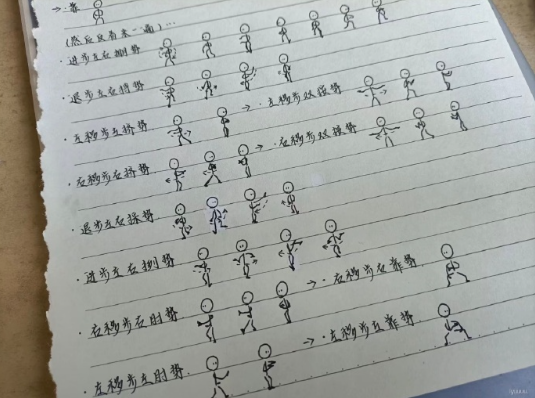 →·靠
(然后反着来一遍)…
·进步左右捌势
·退步左右捋势
·左移步左挤势 →·左移步双按势
·右移步右挤势 →·右移步双按势
·退步左右採势
·进步左右挒势
·右移步右肘势 →·右移步右靠势
·左移步左肘势 →·左移步左靠势